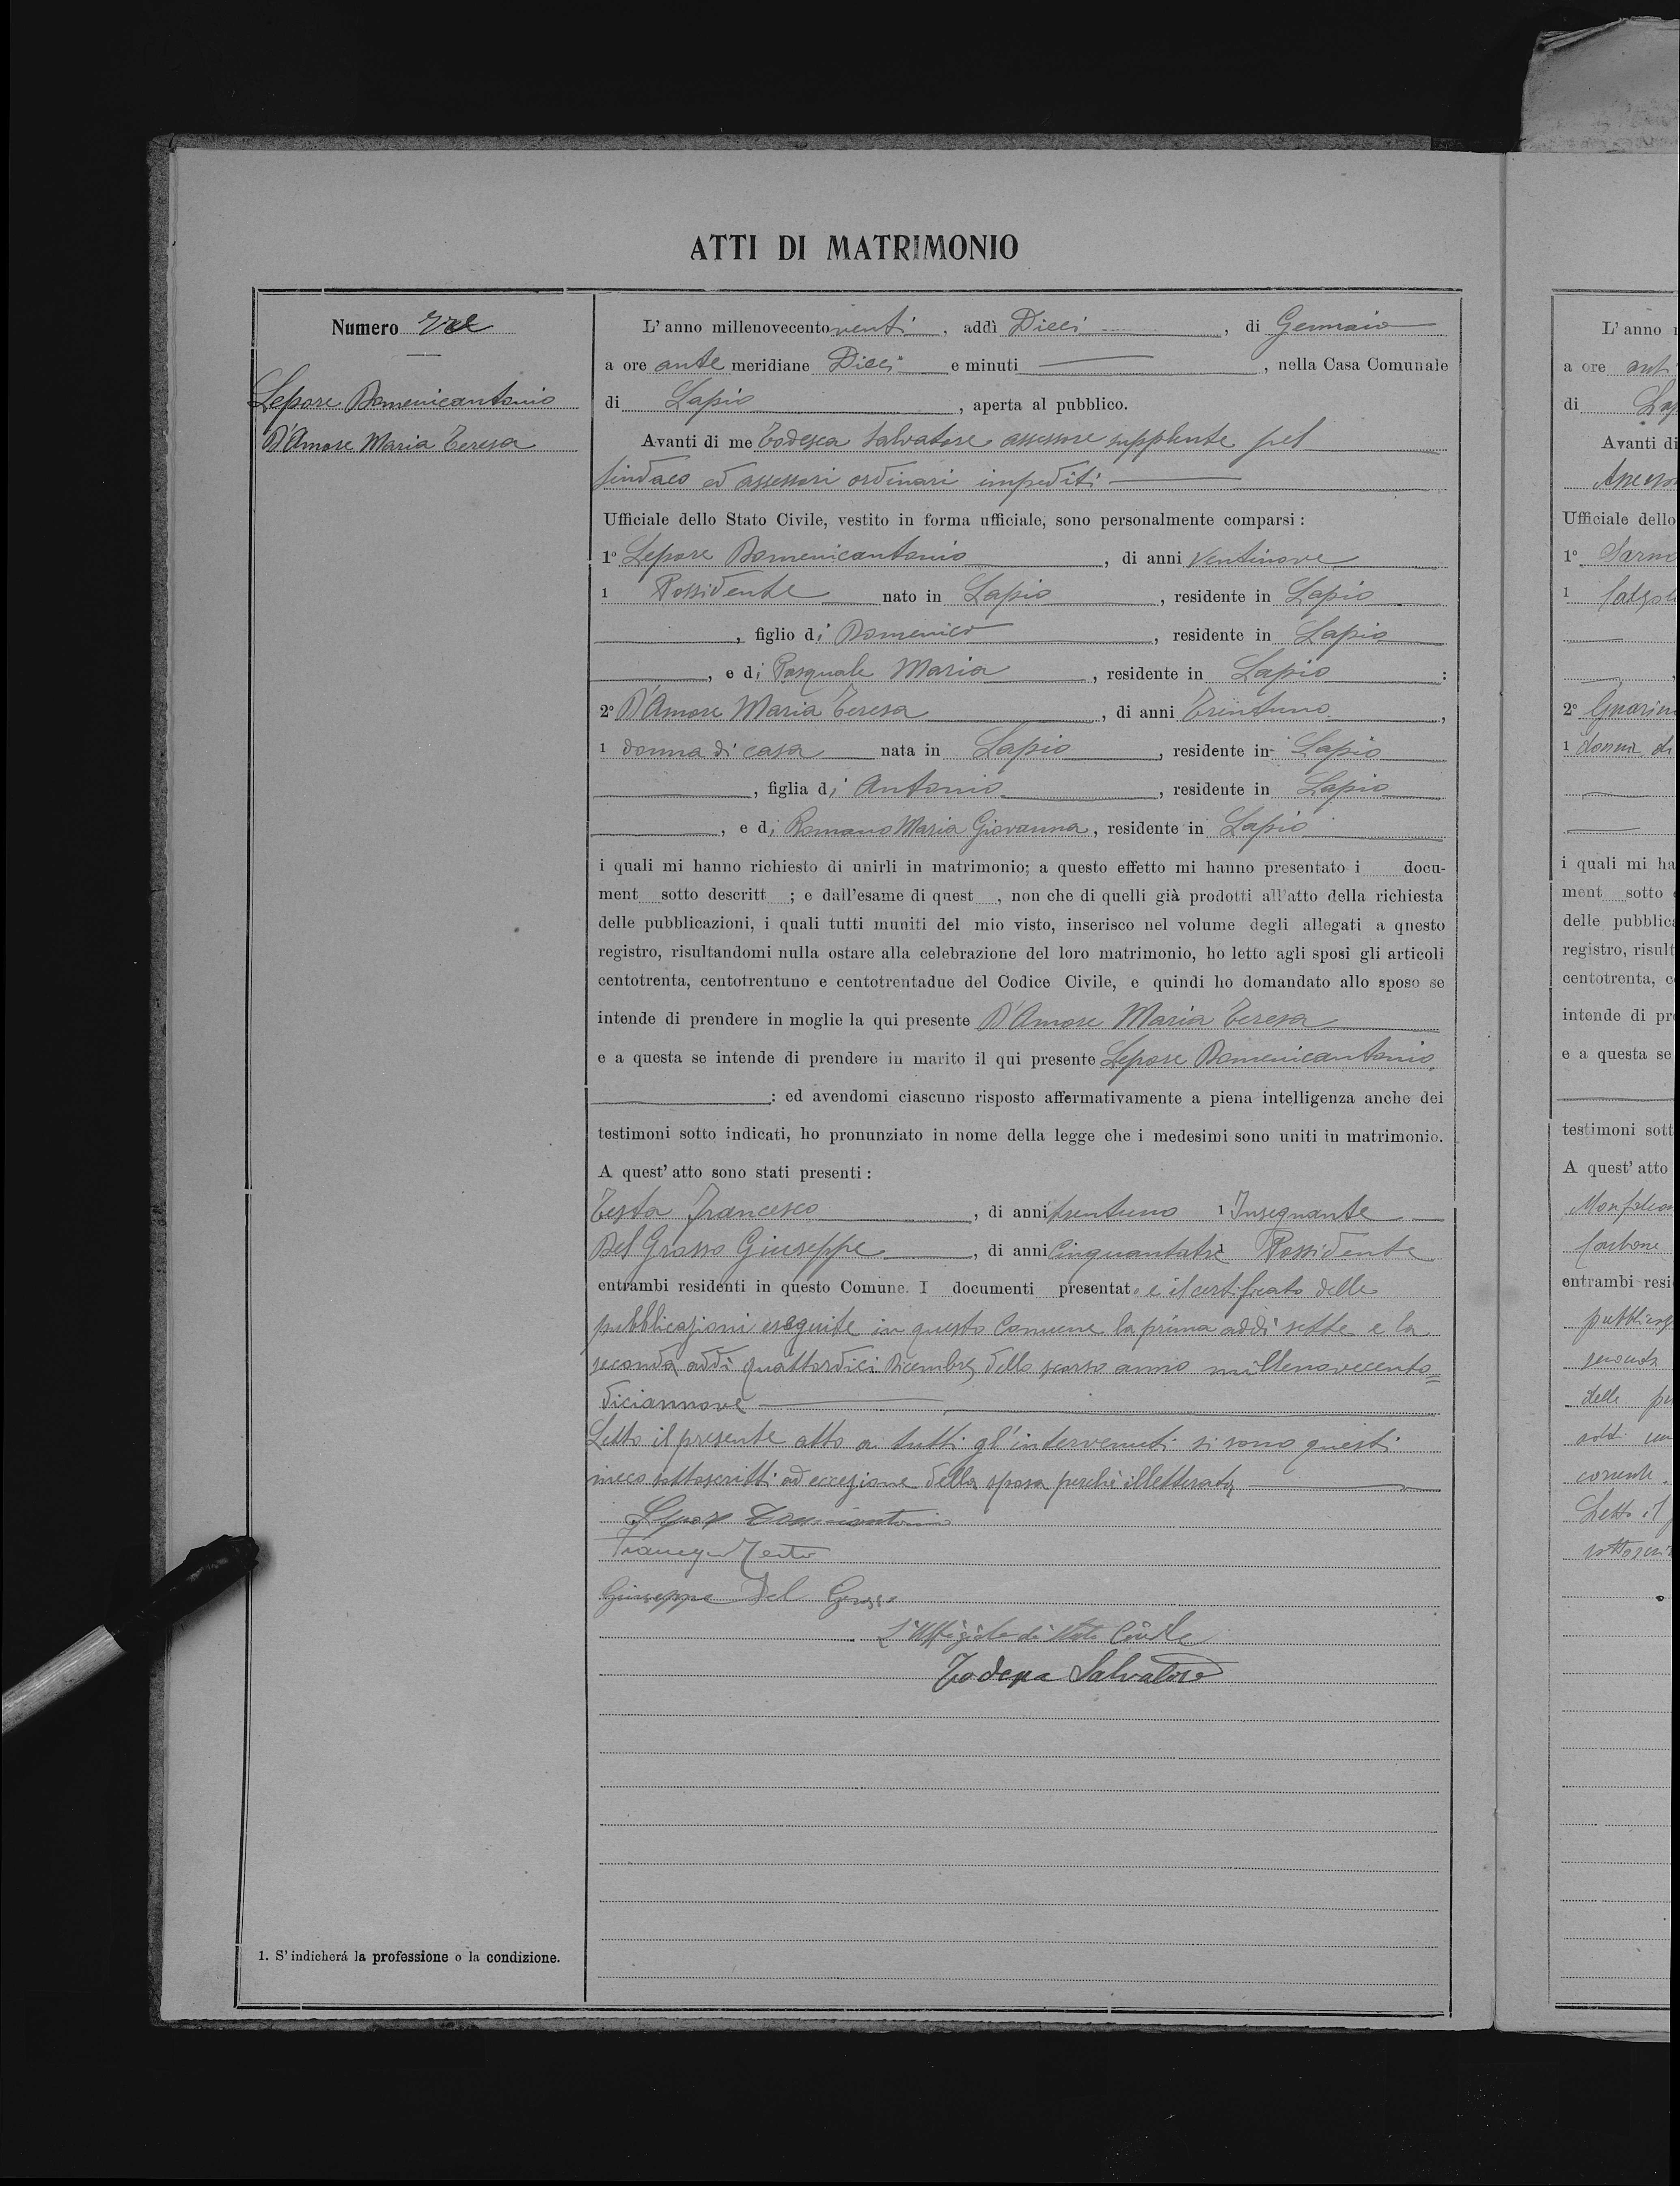 ATTI DI MATRIMONIO
Numero Tre
Lepore Domenicantonio
D'Amore Maria Teresa
1. S'indicherá la professione o la condizione.
L'anno millenovecento venti, addì Dieci, di Gennaio
a ore ante meridiane Dieci e minuti , nella Casa Comunale
di Lapio, aperta al pubblico.
Avanti di me Todesca Salvatore assessore supplente pel
sindaco ed assessori ordinari impediti
Ufficiale dello Stato Civile, vestito in forma ufficiale, sono personalmente comparsi :
1º Lepore Domenicantonio, di anni ventinove
1 Possidente nato in Lapio, residente in Lapio
, figlio di Domenico, residente in Lapio
, e di Pasquale Maria, residente in Lapio :
2º D'Amore Maria Teresa, di anni Trentuno,
1 donna di casa nata in Lapio, residente in Lapio
, figlia di Antonio, residente in Lapio
, e di Romano Maria Giovanna, residente in Lapio
i quali mi hanno richiesto di unirli in matrimonio; a questo effetto mi hanno presentato i docu-
ment sotto descritt ; e dall'esame di quest , non che di quelli già prodotti all'atto della richiesta
delle pubblicazioni, i quali tutti muniti del mio visto, inserisco nel volume degli allegati a questo
registro, risultandomi nulla ostare alla celebrazione del loro matrimonio, ho letto agli sposi gli articoli
centotrenta, centotrentuno e centotrentadue del Codice Civile, e quindi ho domandato allo sposo se
intende di prendere in moglie la qui presente D'Amore Maria Teresa
e a questa se intende di prendere in marito il qui presente Lepore Domenicantonio
: ed avendomi ciascuno risposto affermativamente a piena intelligenza anche dei
testimoni sotto indicati, ho pronunziato in nome della legge che i medesimi sono uniti in matrimonio.
A quest'atto sono stati presenti :
Testa Francesco, di anni trentuno 1 Insegnante
Del Grosso Giuseppe, di anni Cinquantatre 1 Possidente
entrambi residenti in questo Comune. I documenti presentato è il certificato delle
pubblicazioni eseguite in questo Comune la prima addì sette e la
seconda addì quattordici Dicembre dello scorso anno millenovecento=
diciannove
Letto il presente atto a tutti gl'intervenuti si sono questi
meco sottoscritti ad eccezione della sposa perchè illetterata
Lepore Domenicantonio
Francesco Testa
Giuseppe Del Grosso
L'Uffiziale di Stato Civile
Todesca Salvatore
L'anno
a ore ant
di Lap
Avanti di
Assesso
Ufficiale dello
1º Sarno
1
2º Guarin
1 donna di
i quali mi ha
ment sotto
delle pubblica
registro, risult
centotrenta, c
intende di pre
e a questa se
testimoni sott
A quest'atto
Carbone
entrambi resi
pubblicaz
seconda
delle pu
corrente.
Letto il p
sottoscri